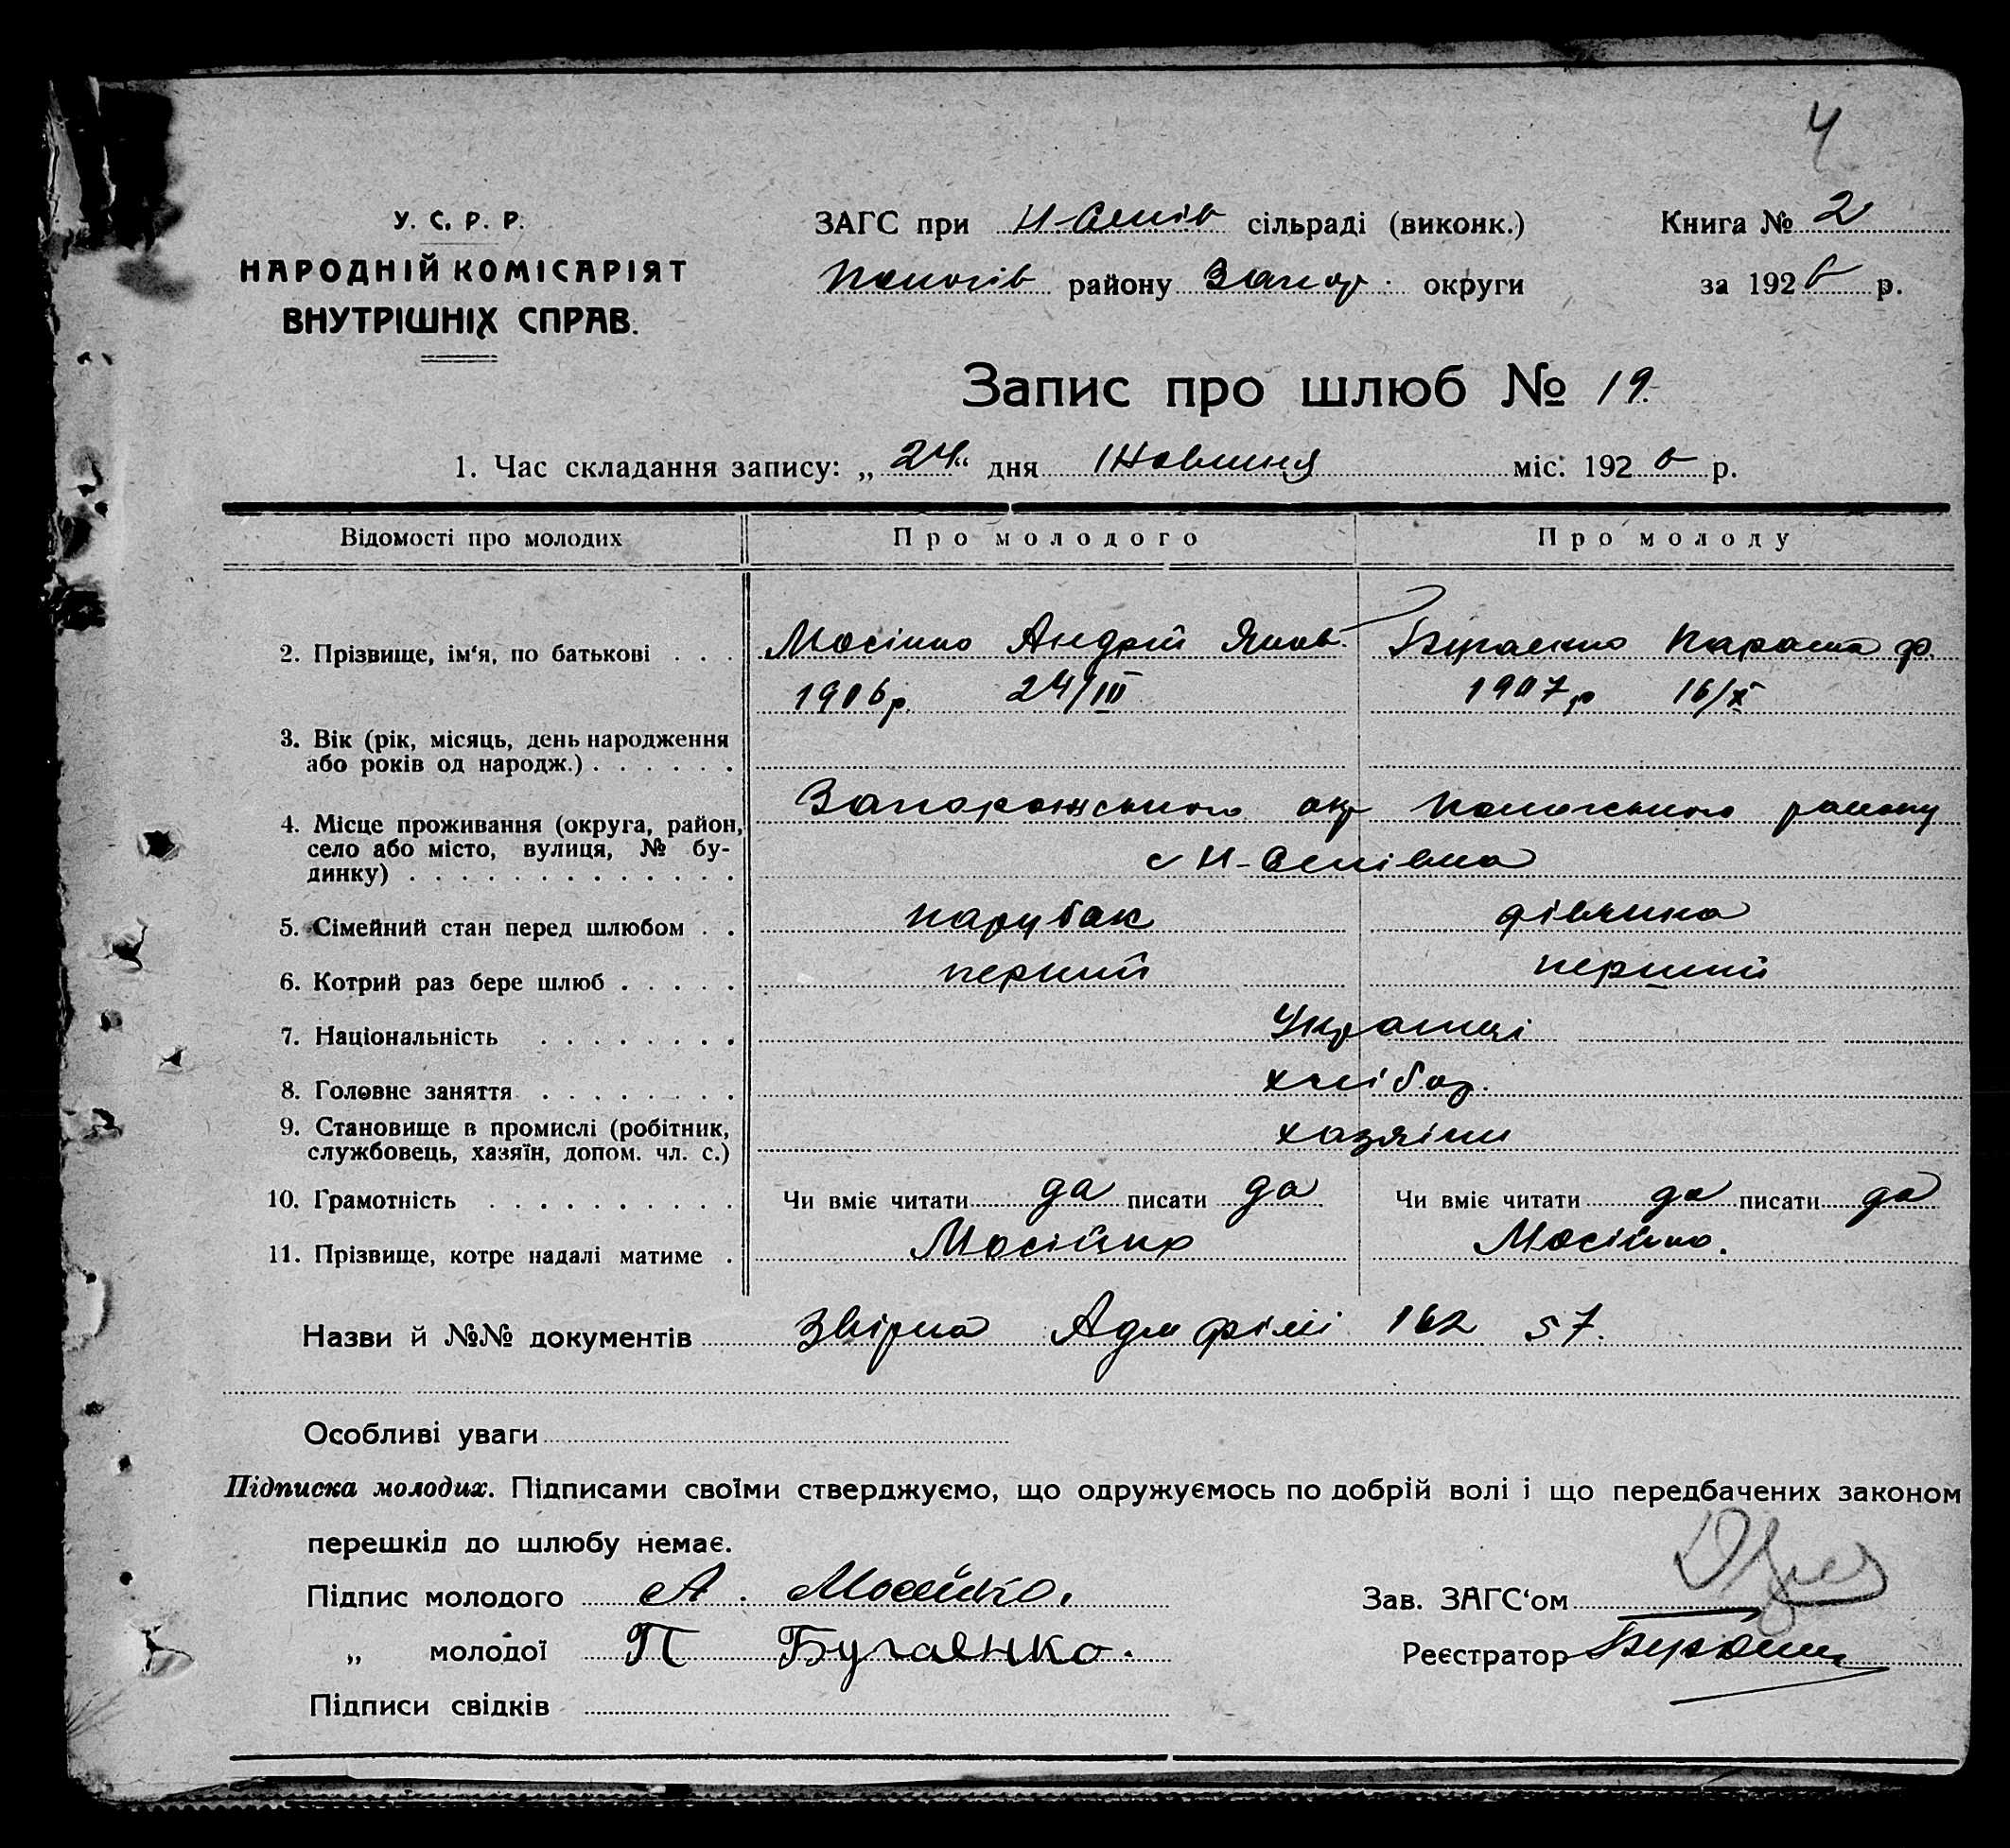 4
У. С. Р. Р.
НАРОДНІЙ КОМІСАРІЯТ
ВНУТРІШНІХ СПРАВ.
ЗАГС при Н-Селів сільраді (виконк.)
Пологів району Запор. округи
Книга № 2
за 1926 р.
Запис про шлюб № 19.
1. Час складання запису: „24“ дня Жовтня міс. 1926 р.
Відомості про молодих Про молодого Про молоду
2. Прізвище, ім‘я, по батькові . . . Мосійко Андрій Яков. Бугаєнко Параска Ф.
1906 р. 24/III 1907 р 16/X
3. Вік (рік, місяць, день народження
або років од народж.) . . . . . .
4. Місце проживання (округа, район,
село або місто, вулиця, № бу-
динку) . . . . . . . . . . . . .
Запорожського окр Пологського району
с Н-Селівка
5. Сімейний стан перед шлюбом . . парубак дівчина
6. Котрий раз бере шлюб . . . . . перший перший
7. Національність . . . . . . . . Українці
8. Головне заняття . . . . . . . . хлібор.
9. Становище в промислі (робітник,
службовець, хазяїн, допом. чл. с.) хазяїни
10. Грамотність . . . . . . . . . . Чи вміє читати да писати да Чи вміє читати да писати да
11. Прізвище, котре надалі матиме . Мосійко Мосійко.
Назви й №№ документів Звірка 162 57.
Особливі уваги
Підписка молодих. Підписами своїми стверджуємо, що одружуємось по добрій волі і що передбачених законом
перешкід до шлюбу немає.
Підпис молодого А. Мосійко.
„ молодої П Бугаенко.
Підписи свідків
Зав. ЗАГС‘ом
Реєстратор